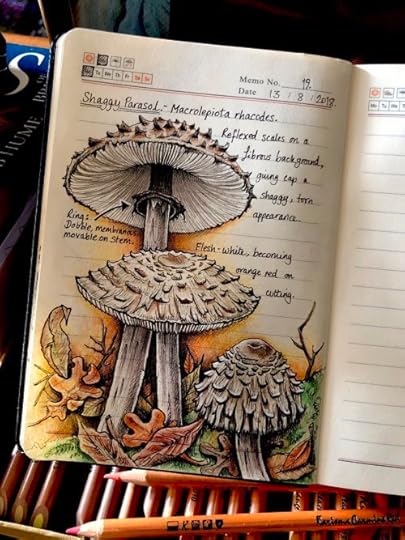 Memo No. 19.
Date 13 / 8 / 2018.
Mo Tu We Th Fr Sa Su
Shaggy Parasol.- Macrolepiota rhacodes.
Reflexed scales on a
fibrous background,
giving cap a
shaggy, torn
appearance.
Ring:
Double, membranous,
movable on stem.
Flesh-white, becoming
orange red on
cutting.
Mo Tu
HUME